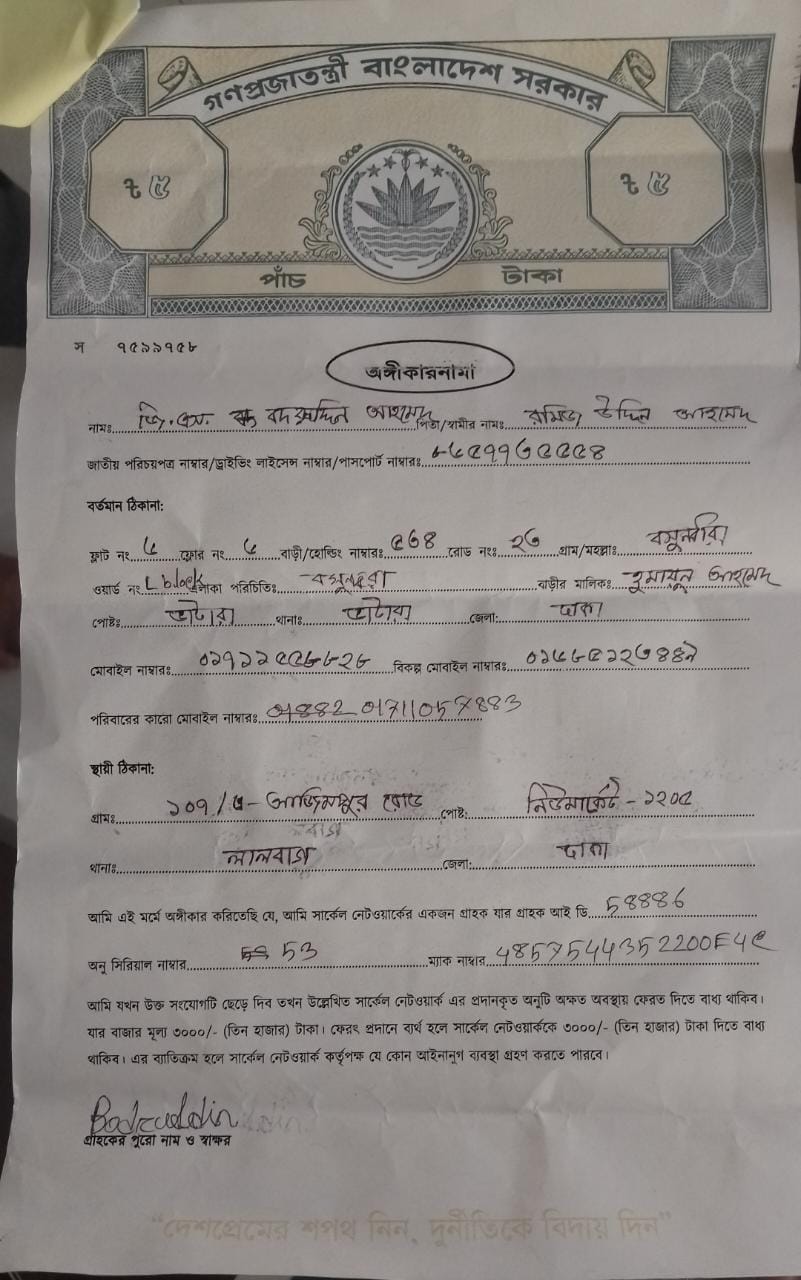 গণপ্রজাতন্ত্রী বাংলাদেশ সরকার
৳ ৫ ৳ ৫
পাঁচ টাকা
স ৭৫৯৯৭৫৮
অঙ্গীকারনামা
নামঃ জি.এম. বদরুদ্দিন আহমেদ পিতা/স্বামীর নাম: রমিজ উদ্দিন আহমেদ
জাতীয় পরিচয়পত্র নাম্বার/ড্রাইভিং লাইসেন্স নাম্বার/পাসপোর্ট নাম্বারঃ
বর্তমান ঠিকানা:
ফ্লাট নং ফ্লোর নং বাড়ী/হোল্ডিং নাম্বারঃ রোড নংঃ গ্রাম/মহল্লাঃ
ওয়ার্ড নং L block এলাকা পরিচিতিঃ বসুন্ধরা বাড়ীর মালিকঃ হুমায়ূন আহমেদ
পোষ্টঃ ভাটারা থানাঃ ভাটারা জেলা: ঢাকা
মোবাইল নাম্বারঃ বিকল্প মোবাইল নাম্বারঃ
পরিবারের কারো মোবাইল নাম্বারঃ
স্থায়ী ঠিকানা:
গ্রামঃ আজিমপুর রোড পোষ্ট: নিউমার্কেট - ১২০৫
থানাঃ লালবাগ জেলা: ঢাকা
আমি এই মর্মে অঙ্গীকার করিতেছি যে, আমি সার্কেল নেটওয়ার্কের একজন গ্রাহক যার গ্রাহক আই ডি 58886
অনু সিরিয়াল নাম্বার 53 ম্যাক নাম্বার
আমি যখন উক্ত সংযোগটি ছেড়ে দিব তখন উল্লেখিত সার্কেল নেটওয়ার্ক এর প্রদানকৃত অনুটি অক্ষত অবস্থায় ফেরত দিতে বাধ্য থাকিব।
যার বাজার মূল্য ৩০০০/- (তিন হাজার) টাকা। ফেরৎ প্রদানে ব্যর্থ হলে সার্কেল নেটওয়ার্ককে ৩০০০/- (তিন হাজার) টাকা দিতে বাধ্য
থাকিব। এর ব্যতিক্রম হলে সার্কেল নেটওয়ার্ক কর্তৃপক্ষ যে কোন আইনানুগ ব্যবস্থা গ্রহণ করতে পারবে।
Badruddin
গ্রাহকের পুরো নাম ও স্বাক্ষর
“দেশপ্রেমের শপথ নিন, দুর্নীতিকে বিদায় দিন”